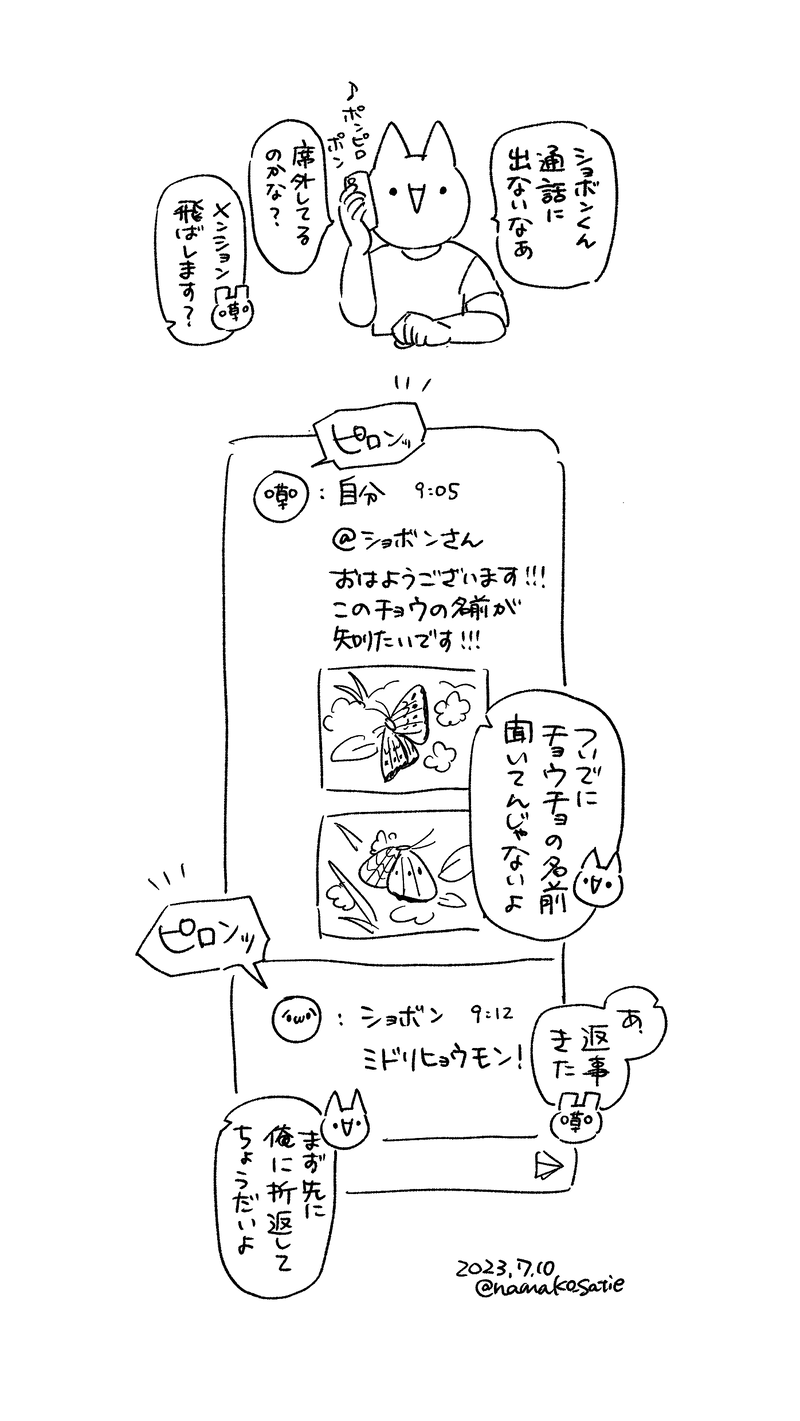 ショボンくん
通話に
出ないなぁ
♪
ポンピロ
ポン
席外してる
のかな？
メンション
飛ばします？
ピロンッ
：自分 9:05
@ショボンさん
おはようございます!!!
このチョウの名前が
知りたいです!!!
ついでに
チョウチョの名前
聞いてんじゃないよ
ピロンッ
(´･ω･`)
：ショボン 9:12
ミドリヒョウモン!
あ、
返事
きた
まず先に
俺に折返して
ちょうだいよ
2023.7.10
@namako_satie